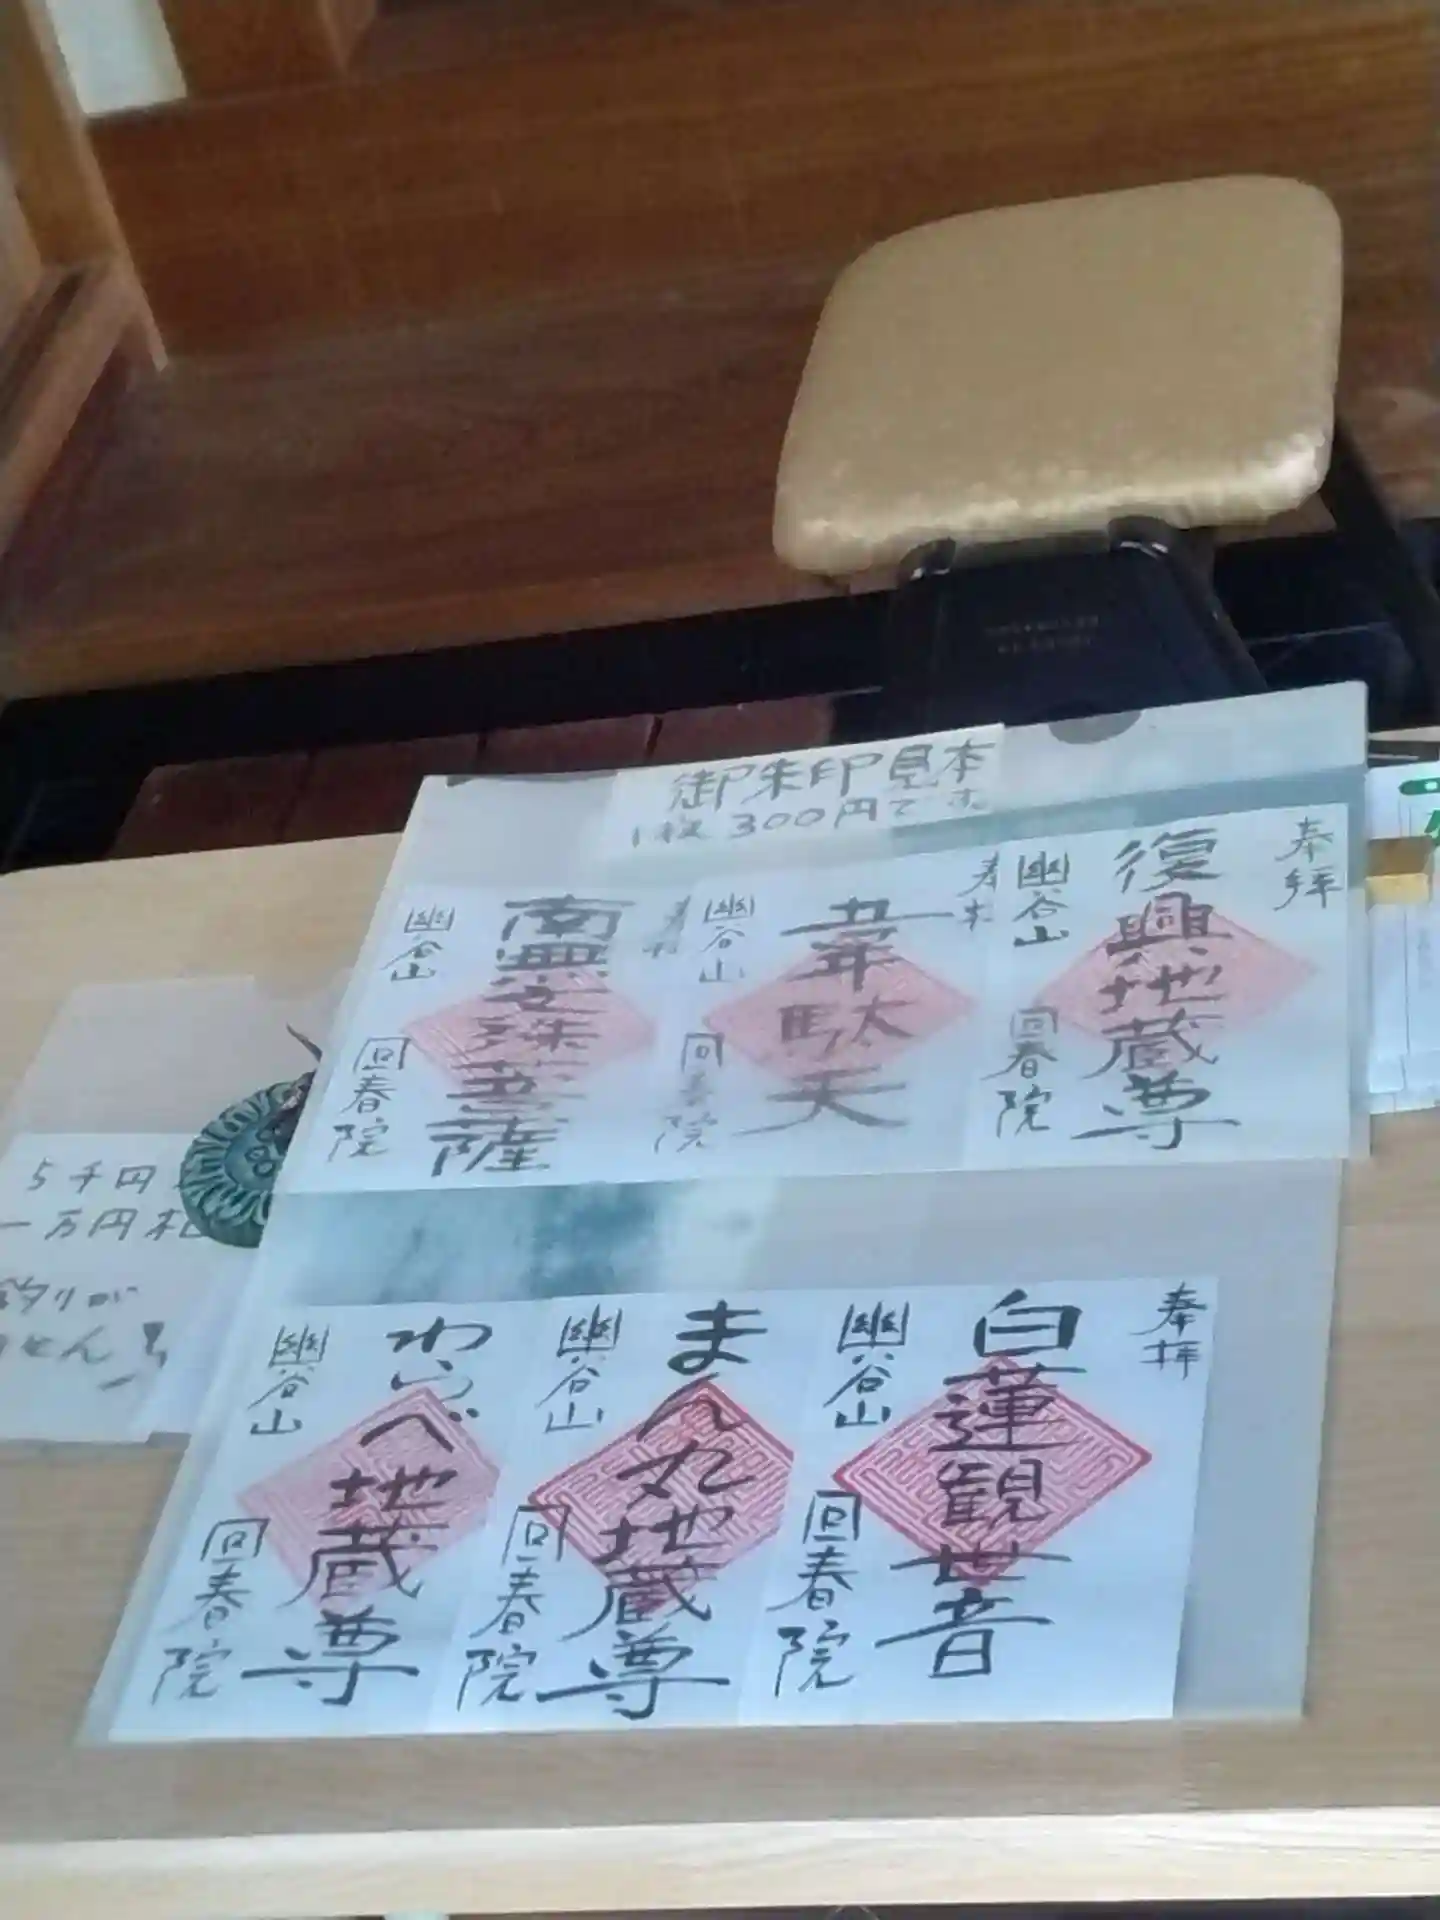 御朱印見本
1枚300円です
奉拝
復興地蔵尊
幽谷山
回春院
奉拝
韋駄天
幽谷山
回春院
奉拝
南無文殊菩薩
幽谷山
回春院
奉拝
白蓮観世音
幽谷山
回春院
まん丸地蔵尊
幽谷山
回春院
わらべ地蔵尊
幽谷山
回春院
5千円
一万円札
釣りが
せん